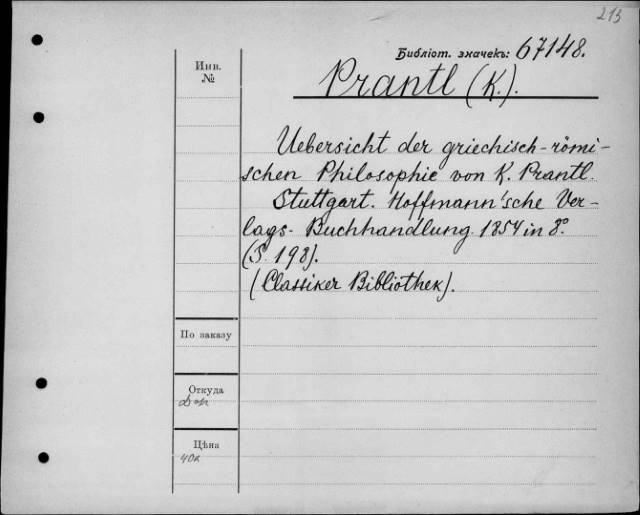 213
Библіот. значекъ: 67148.
Инв.
№
Prantl (K.).
Uebersicht der griechisch-römi-
schen Philosophie von K. Prantl.
Stuttgart. Hoffmann'sche Ver-
lags-Buchhandlung. 1854 in 8°.
(S. 198).
(Classiker Bibliothek).
По заказу
Откуда
Цѣна
40к